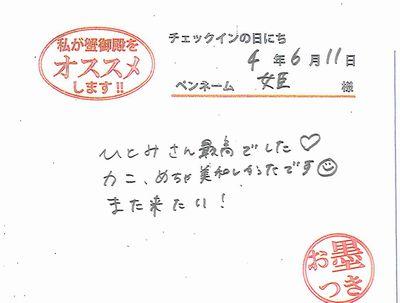 私が蟹御殿を
オススメ
します!!
チェックインの日にち
4年6月11日
ペンネーム 姫 様
ひとみさん最高でした♡
カニ、めちゃ美和しかったです☺
また来たい!
お墨
つき